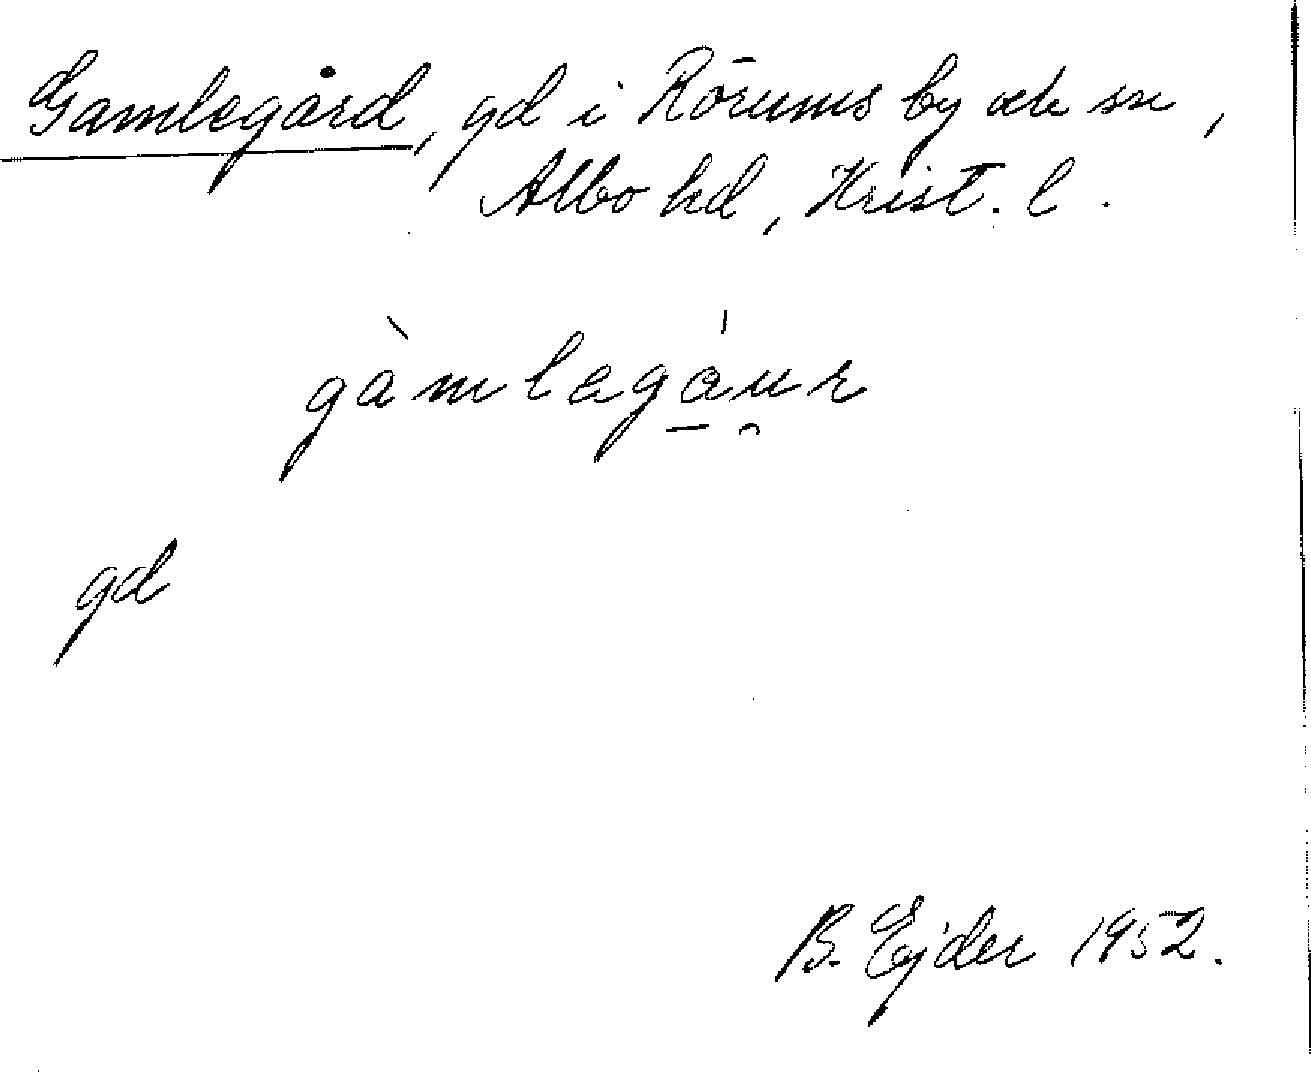 Gamlegård, gd i Rörums by o sn,
Albo hd, Krist. l.
gàmlagáu̯r
gd
B. Ejder 1952.